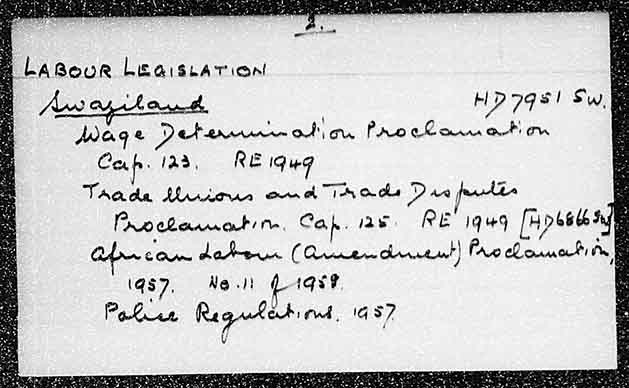 2.
LABOUR LEGISLATION
Swaziland HD7951 Sw.
Wage Determination Proclamation
Cap. 123. RE 1949
Trade Unions and Trade Disputes
Proclamation. Cap. 125. RE 1949 [HD6866 Sw]
African Labour (Amendment) Proclamation,
1957. No. 11 of 1958.
Police Regulations. 1957.